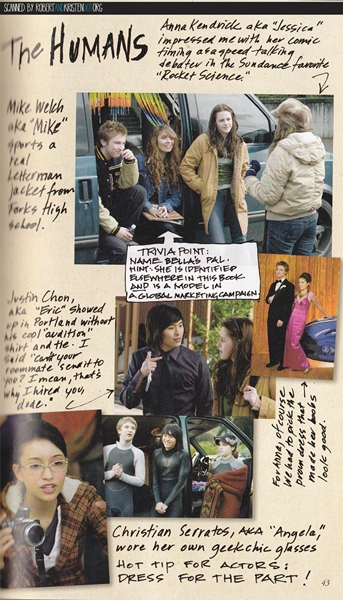 SCANNED BY ROBERTANDKRISTEN.ORG
The HUMANS
Anna Kendrick aka "Jessica"
impressed me with her comic
timing as a speed talking
debater in the Sundance favorite
"Rocket Science."
Mike Welch
aka "Mike"
sports a
real
Letterman
jacket from
Forks High
school.
TRIVIA POINT:
NAME BELLA'S PAL.
HINT: SHE IS IDENTIFIED
ELSEWHERE IN THIS BOOK
AND IS A MODEL IN
A GLOBAL MARKETING CAMPAIGN.
Justin Chon,
aka "Eric" showed
up in Portland without
his cool "audition"
shirt and tie. I
said "can't your
roommate send it to
you? I mean, that's
why I hired you,
dude."
For Anna, of course
we had to pick the
prom dress that
made her boobs
look good.
Christian Serratos, AKA "Angela,"
wore her own geek chic glasses
HOT TIP FOR ACTORS:
DRESS FOR THE PART!
43